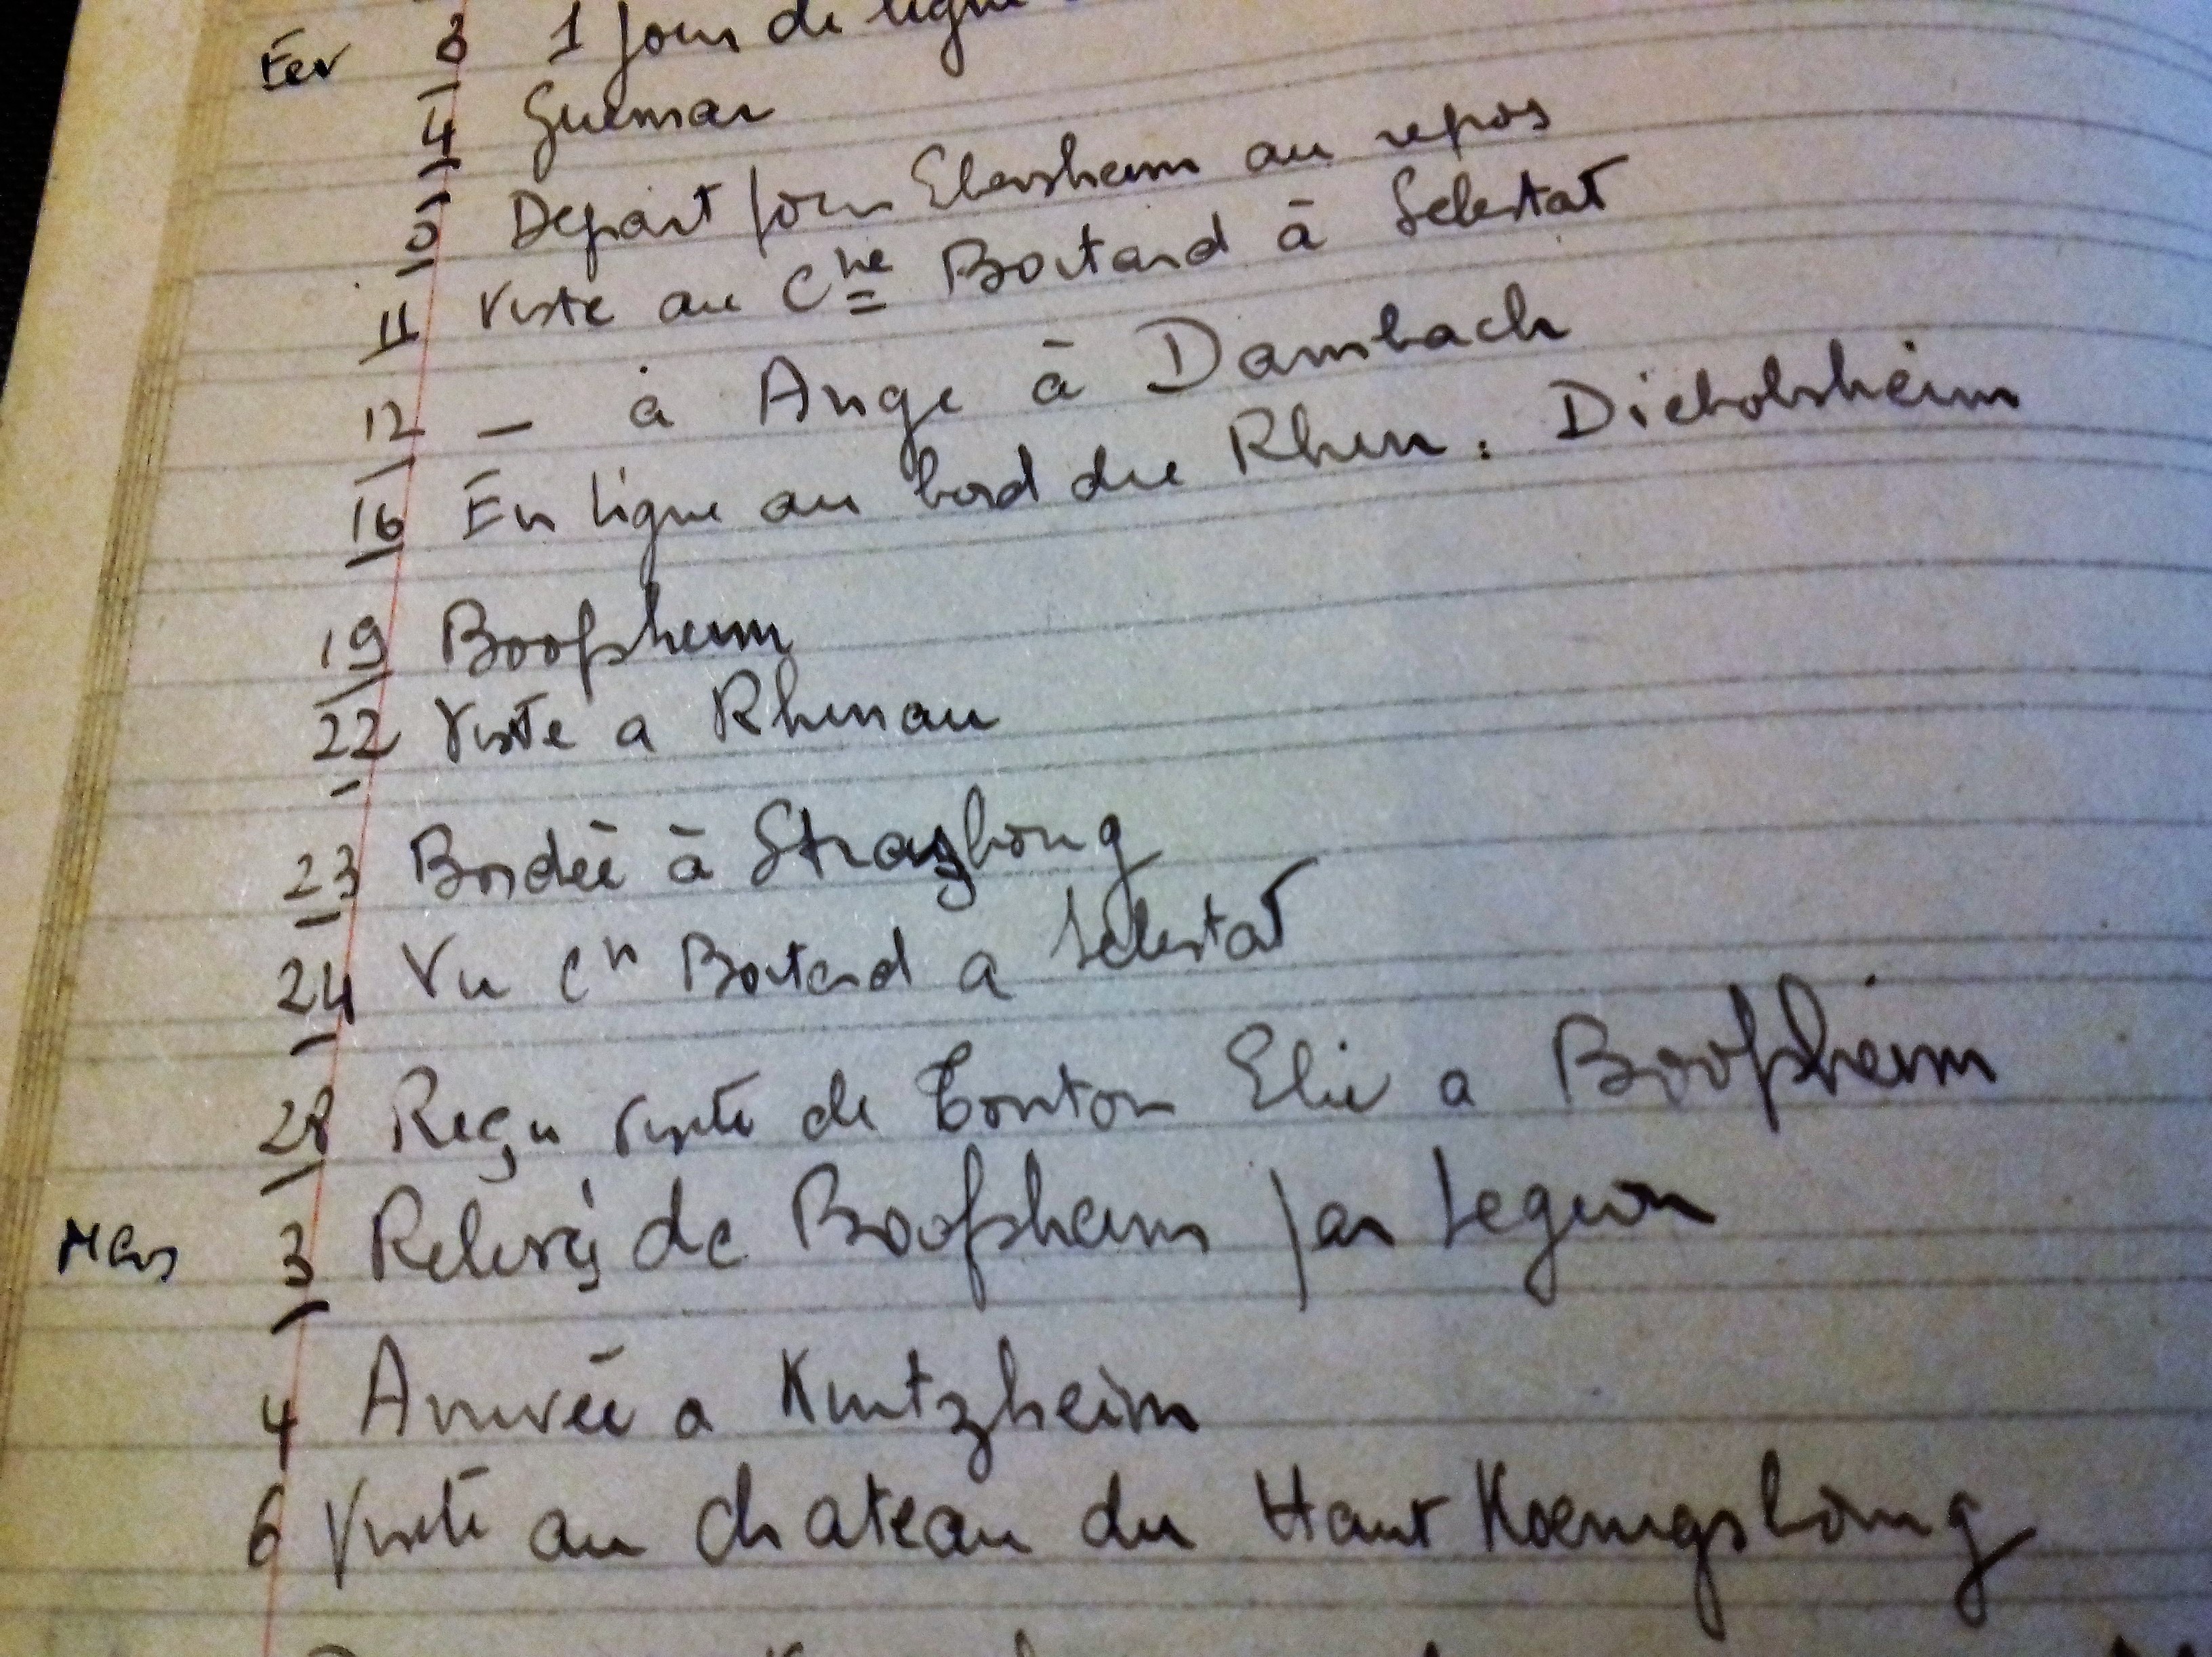 Fev 3 1 jour de ligne
4 Guemar
5 Depart pour Ebersheim au repos
11 Visite au Cne Boutard à Selestat
12 — à Ange à Dambach
16 En ligne au bord du Rhin : Diebolsheim
19 Boofsheim
22 Visite a Rhinau
23 Bordée à Strasbourg
24 Vu Cn Boutard a Selestat
28 Reçu visite de Tonton Elie a Boofsheim
Mars 3 Relevés de Boofsheim par Legion
4 Arrivée a Kintzheim
6 Visite au chateau du Haut Koenigsbourg